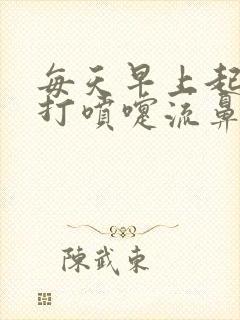 每天早上起
打噴嚏流鼻
陳武東